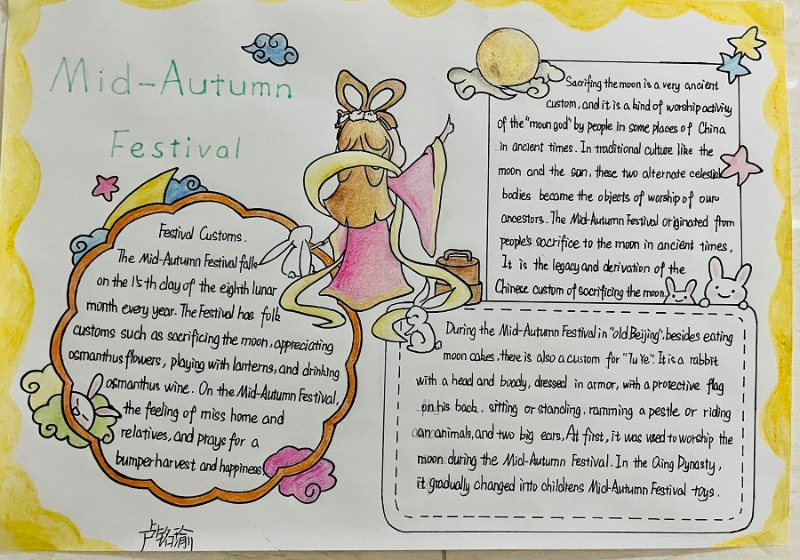 Mid-Autumn
Festival
Festival Customs.
The Mid-Autumn Festival falls
on the 15th day of the eighth lunar
month every year. The Festival has folk
customs such as sacrificing the moon, appreciating
osmanthus flowers, playing with lanterns, and drinking
osmanthus wine. On the Mid-Autumn Festival,
the feeling of miss home and
relatives, and prays for a
bumper harvest and happiness.
Sacrifing the moon is a very ancient
custom, and it is a kind of worship activity
of the "moon god" by people in some places of China
in ancient times. In traditional culture like the
moon and the sun, these two alternate celestial
bodies became the objects of worship of our
ancestors. The Mid-Autumn Festival originated from
people's sacrifice to the moon in ancient times.
It is the legacy and derivation of the
Chinese custom of sacrificing the moon.
During the Mid-Autumn Festival in "old Beijing", besides eating
moon cakes, there is also a custom for "Tu Ye". It is a rabbit
with a head and boody, dressed in armor, with a protective flag
on his back, sitting or standing, ramming a pestle or riding
an animals, and two big ears. At first, it was used to worship the
moon during the Mid-Autumn Festival. In the Qing Dynasty,
it gradually changed into childrens Mid-Autumn Festival toys.
卢铭瑜